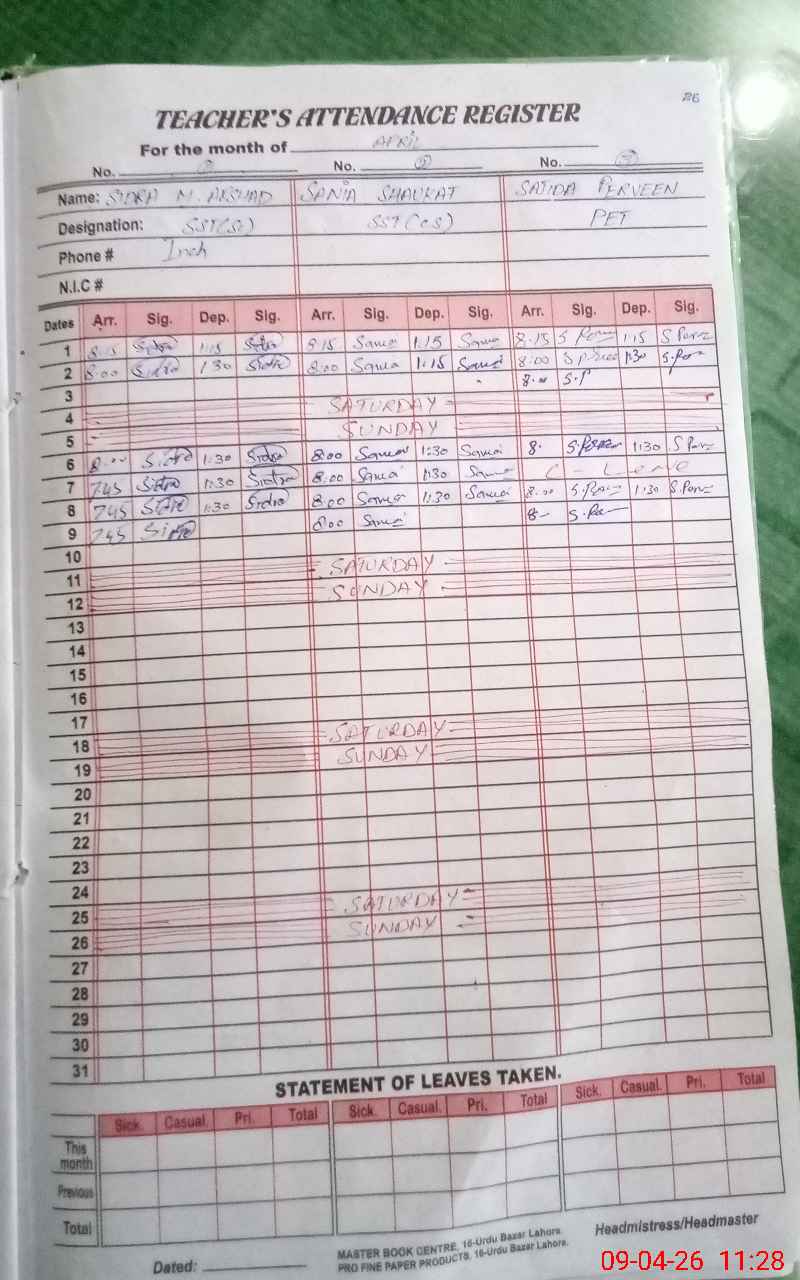 26
TEACHER'S ATTENDANCE REGISTER
For the month of APRIL
No. ① No. ② No. ③
Name: SIDRA M. ARSHAD SANIA SHAUKAT SAJIDA PERVEEN
Designation: SST(Sc) SST(CS) PET
Phone # Inch
N.I.C #
Dates Arr. Sig. Dep. Sig. Arr. Sig. Dep. Sig. Arr. Sig. Dep. Sig.
1 8:15 Sidra 1:15 Sidra 8:15 Sania 1:15 Sania 8:15 1:15
2 8:00 Sidra 1:30 Sidra 8:00 Sania 1:15 Sania 8:00 1:30
3 8:00 S.P
4 SATURDAY
5 SUNDAY
6 8:00 Sidra 1:30 Sidra 8:00 Sania 1:30 Sania 8- 1:30
7 745 Sidra 1:30 Sidra 8:00 Sania 1:30 Sania C - Leave
8 745 Sidra 1:30 Sidra 8:00 Sania 1:30 Sania 8:00 1:30
9 745 Sidra 8:00 Sania 8-
10
11 SATURDAY
12 SUNDAY
13
14
15
16
17
18 SATURDAY
19 SUNDAY
20
21
22
23
24
25 SATURDAY
26 SUNDAY
27
28
29
30
31
STATEMENT OF LEAVES TAKEN.
Sick. Casual. Pri. Total Sick. Casual. Pri. Total Sick. Casual. Pri. Total
This month
Previous
Total
Dated:
MASTER BOOK CENTRE, 16-Urdu Bazar Lahore.
PRO FINE PAPER PRODUCTS, 16-Urdu Bazar Lahore.
Headmistress/Headmaster
09-04-26 11:28